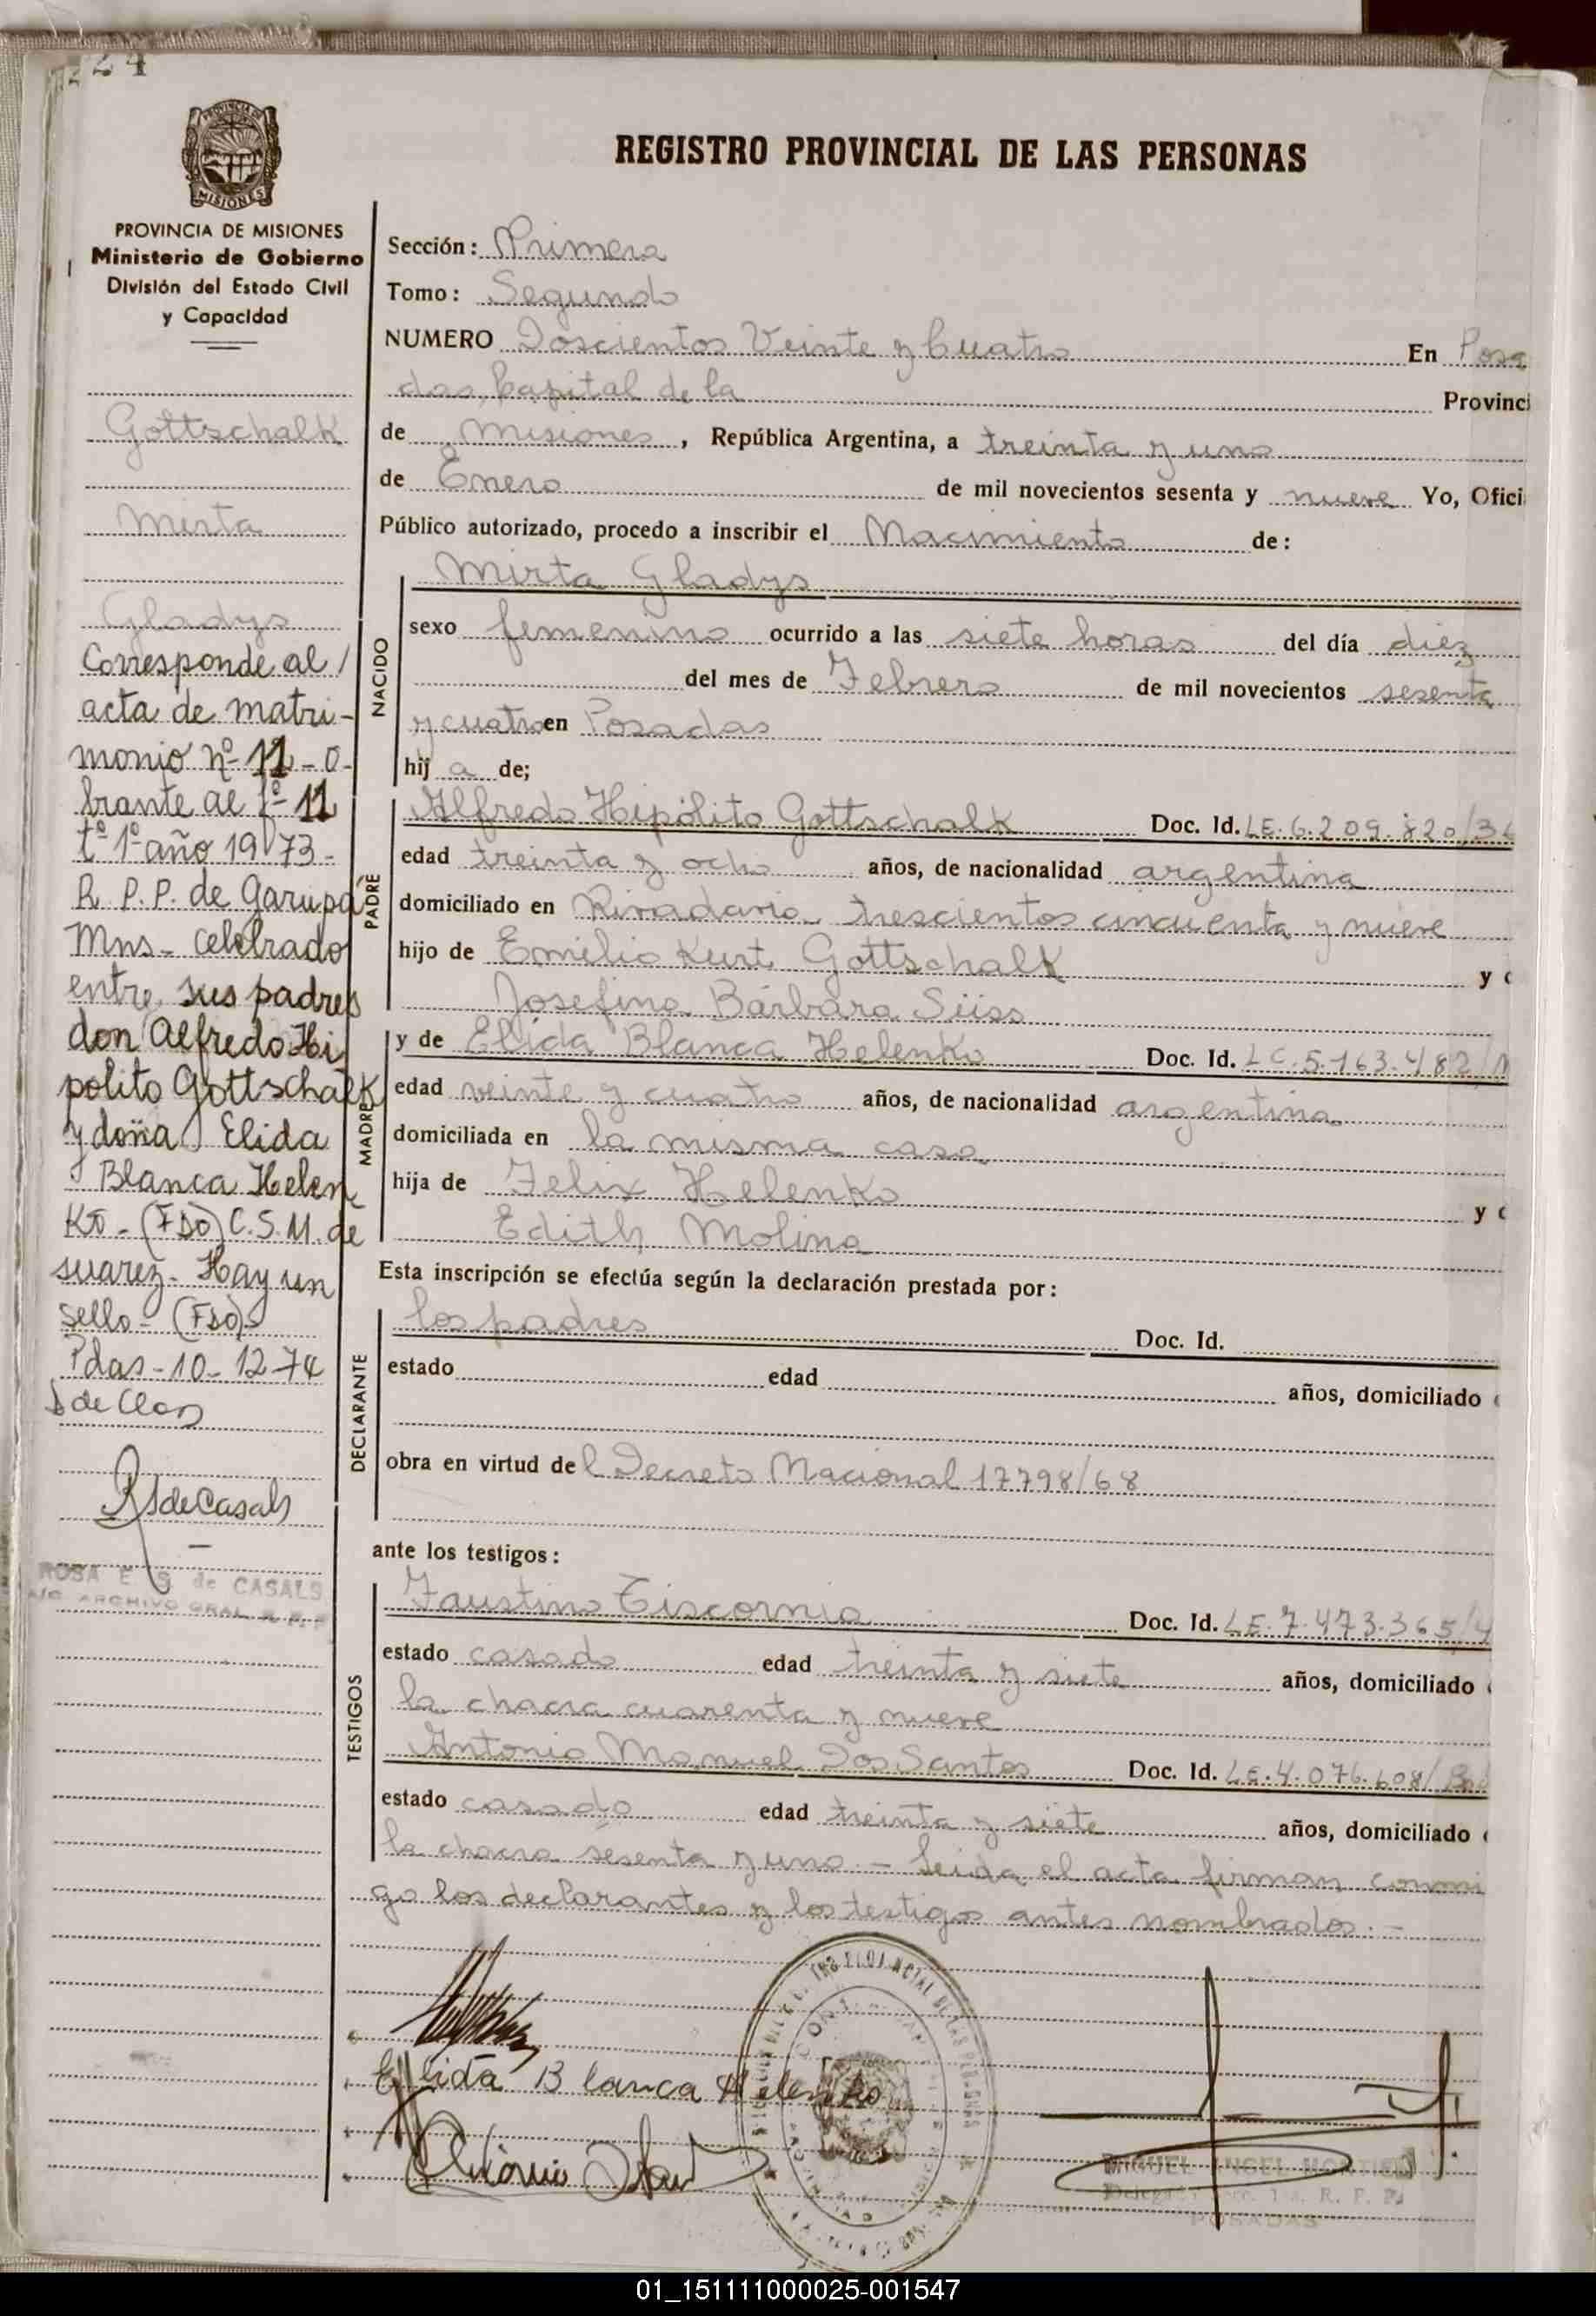 224
PROVINCIA DE MISIONES
PROVINCIA DE MISIONES
Ministerio de Gobierno
División del Estado Civil
y Capacidad
Gottschalk
Mirta
Gladys
Corresponde al /
acta de matri-
monio nº 11 - o-
brante al fº 11
tº 1º año 1973 -
R. P. P. de Garupá
Mns - celebrado
entre sus padres
don Alfredo Hi
polito Gottschalk
y doña Elida
Blanca Helen
Ko - (Fdo) C. S. M. de
suarez - Hay un
sello - (Fdo)
Pdas - 10 - 12 - 74
RSdeCasals
ROSA E S de CASALS
A/C ARCHIVO GRAL R. P. P
REGISTRO PROVINCIAL DE LAS PERSONAS
Sección: Primera
Tomo: Segundo
NUMERO Doscientos Veinte y Cuatro En Posa
das, Capital de la Provinci
de Misiones, República Argentina, a treinta y uno
de Enero de mil novecientos sesenta y nueve Yo, Ofici
Público autorizado, procedo a inscribir el Nacimiento de:
Mirta Gladys
NACIDO
sexo femenino ocurrido a las siete horas del día diez
del mes de Febrero de mil novecientos sesenta
y cuatro en Posadas
hij a de;
PADRE
Alfredo Hipólito Gottschalk Doc. Id. LE. 6.209.820/36
edad treinta y ocho años, de nacionalidad argentina
domiciliado en Rivadavia trescientos cincuenta y nueve
hijo de Emilio Kurt Gottschalk y
Josefina Bárbara Süss
MADRE
y de Elida Blanca Helenko Doc. Id. LC. 5.163.482/
edad veinte y cuatro años, de nacionalidad argentina
domiciliada en la misma casa
hija de Felix Helenko y
Edith Molina
Esta inscripción se efectúa según la declaración prestada por:
DECLARANTE
los padres Doc. Id.
estado edad años, domiciliado
obra en virtud del Decreto Nacional 17798/68
ante los testigos:
TESTIGOS
Faustino Tiscornia Doc. Id. LE. 7.473.365/4
estado casado edad treinta y siete años, domiciliado
la chacra cuarenta y nueve
Antonio Manuel Dos Santos Doc. Id. LE. 4.076.608/
estado casado edad treinta y siete años, domiciliado
la chacra sesenta y uno. - Leida el acta firman conmi
go los declarantes y los testigos antes nombrados. -
Elida Blanca Helenko
MIGUEL ANGEL
R. P. P.
POSADAS
01_151111000025-001547